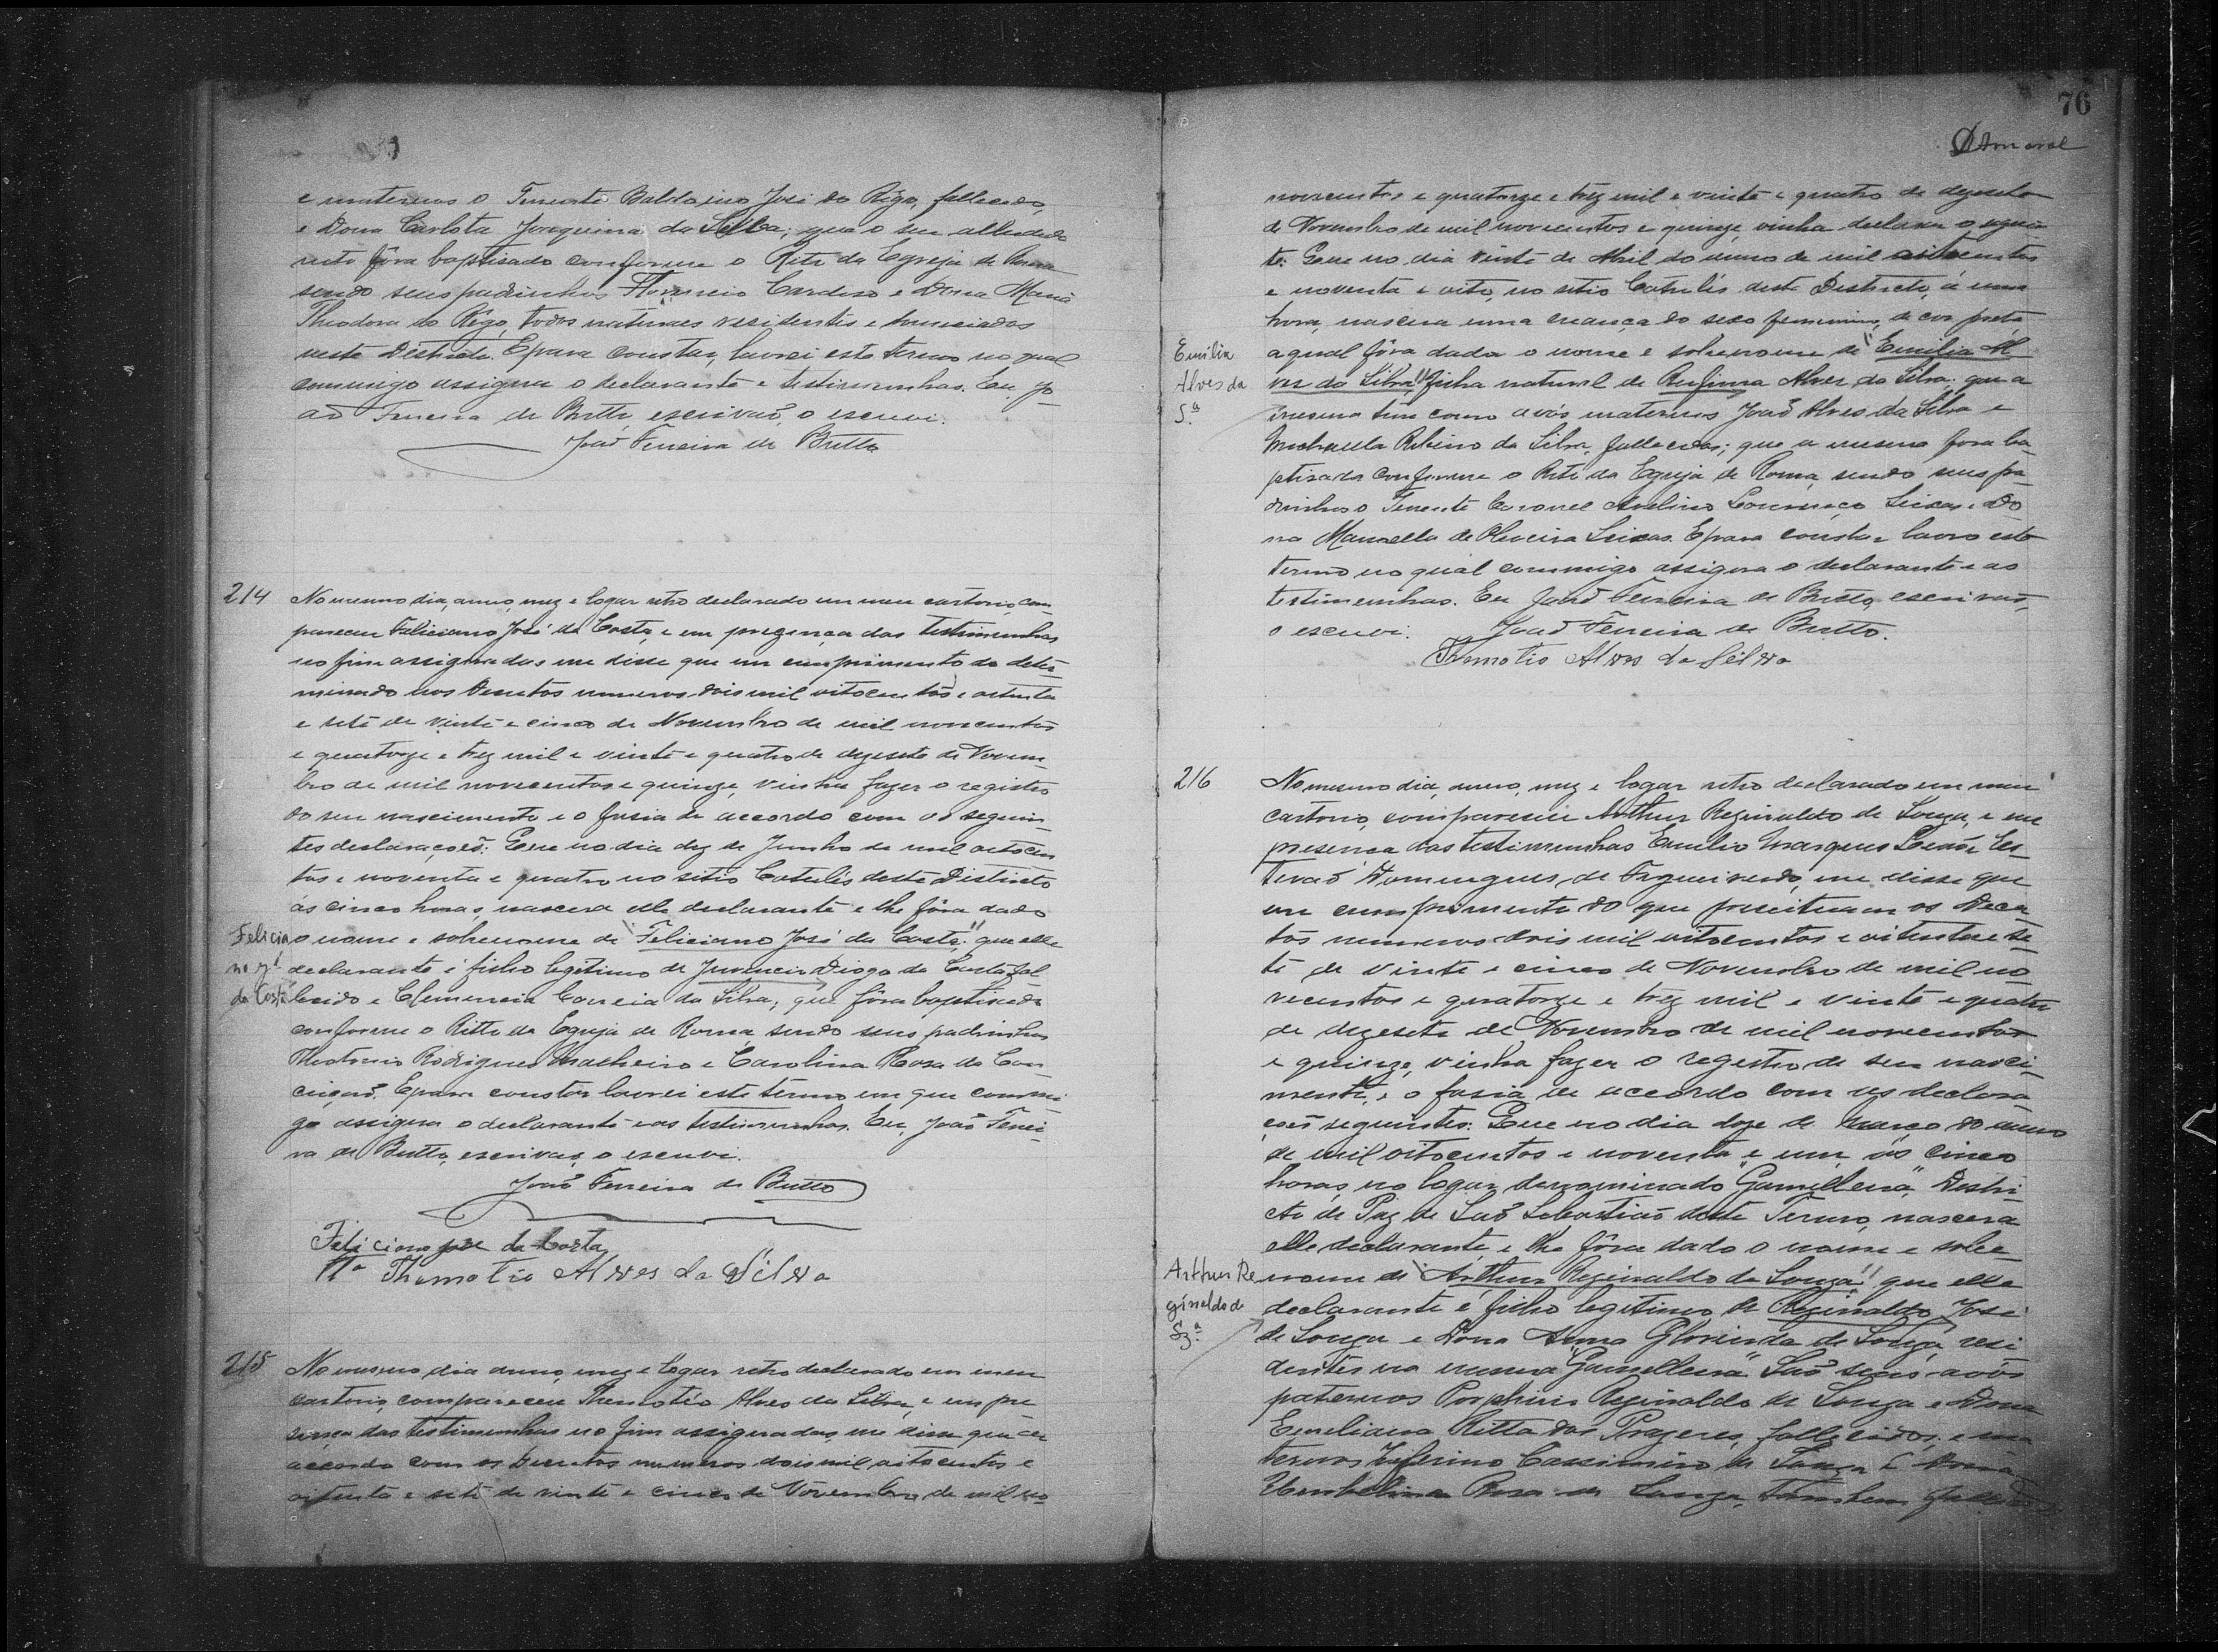 e maternos o Tenente Baldoino José do Rêgo, fallecido,
e Dona Carlota Joaquina da Silva; que o seu alludido
neto fôra baptisado conforme o Rito da Egreja de Roma
sendo seus padrinhos Florencio Cardoso e Dona Maria
Theodora do Rêgo, todos naturaes residentes e domiciados
neste Districto. E para constar, lavrei este termo no qual
commigo assigna o declarante e testimunhas. Eu, Jo
aõ Ferreira de Britto, escrivaõ, o escrevi.
Joaõ Ferreira de Britto
214
No mesmo dia, anno, mez e logar retro declarado em meu cartorio, com
pareceu Feliciano José da Costa, e em prezença das testimunhas
no fim assignadas me disse que em cumprimento do deter
minado nos Decretos numeros dois mil oitocentos e oitenta
e sete de vinte e cinco de Novembro de mil novecentos
e quatorze e trez mil e vinte e quatro de dezesete de Novem
bro de mil novecentos e quinze, vinha fazer o registro
do seu nascimento e o fasia de accordo com as seguin
tes declaraçoẽs: Que no dia dez de Junho de mil oitocen
tos e noventa e quatro no sitio Catulés deste Districto
ás cinco horas, nascera elle declarante e lhe fôra dado
Felicia
no J.é
da Costa
o nome e sobrenome de "Feliciano José da Costa"; que elle
declarante é filho legitimo de Juvencio Diogo da Costa, fal
lecido e Clemencia Correia da Silva; que fôra baptisado
conforme o Ritto da Egreja de Roma, sendo seus padrinhos
Theotonio Rodrigues Malheiro e Carolina Rosa da Con
ceiçaõ. E para constar lavrei este termo em que commi
go assigna o declarante e as testimunhas. Eu, Joaõ Ferrei
ra de Britto, escrivaõ, o escrevi.
Joaõ Ferreira de Britto
Feliciano jose da Costa
Tª Themotio Alves da Silva
215
No mesmo dia anno, mez e logar retro declarado em meu
cartorio, compareceu Themotio Alves da Silva, e em pre
sença das testimunhas no fim assignadas, me disse que de
accordo com os Decretos numeros dois mil oitocentos e
oitenta e sete de vinte e cinco de Novembro de mil no
76
DAmaral
novecentos e quatorze e trez mil e vinte e quatro de dezesete
de Novembro de mil novecentos e quinze, vinha declarar o seguin
te: Que no dia vinte de Abril do anno de mil oitocentos
e noventa e oito, no sitio Catulés deste Districto, á uma
hora, nascera uma criança do sexo feminino, de cor preta
Emilia
Alves da
Sª
a qual fôra dada o nome e sobrenome de "Emilia Al
ves da Silva", filha natural de Rufina Alves da Silva; que a
mesma tem como avós maternos Joaõ Alves da Silva e
Michaella Ribeiro da Silva, fallecidos; que a mesma fora ba
ptisada conforme o Rito da Egreja de Roma, sendo seus pa
drinhos o Tenente Coronel Avelino Lourenço Seixas e Do
na Manoella de Oliveira Seixas. E para constar lavro este
termo no qual commigo assigna o declarante e as
testimunhas. Eu Joaõ Ferreira de Britto, escrivaõ,
o escrevi. Joaõ Ferreira de Britto.
Themotio Alves da Silva
216
No mesmo dia, anno, mez e logar retro declarado em meu
cartorio, compareceu Arthur Reginaldo de Souza, e em
presença das testimunhas Emilio Marques Leaõ e Es
tevaõ Domingues de Figueiredo, me disse que
em cumprimento do que preceituam os Decre
tos numeros dois mil oitocentos e oitenta e se
te de vinte e cinco de Novembro de mil no
vecentos e quatorze e trez mil e vinte e quatro
de dezesete de Novembro de mil novecentos
e quinze, vinha fazer o registro de seu nasci
mento, e o fasia de accordo com as declara
çoẽs seguintes: Que no dia doze de Março do anno
de mil oitocentos e noventa e um, ás cinco
horas, no logar denominado "Gamelleira", Distri
cto de Paz de Saõ Sebastiaõ deste Termo, nascera
elle declarante, e lhe fôra dado o nome e sobre
Arthur Re
ginaldo de
Szª
nome de "Arthur Reginaldo de Souza"; que elle
declarante é filho legitimo de Reginaldo José
de Souza e Dona Anna Glorinda de Souza, resi
dentes na mesma "Gamelleira". Saõ seus avós
paternos Porphirio Reginaldo de Souza e Dona
Emiliana Ritta dos Prazeres, fallecidos; e ma
ternos Zeferino Cassimiro de Souza e Dona
Umbelina Rosa de Souza, tambem